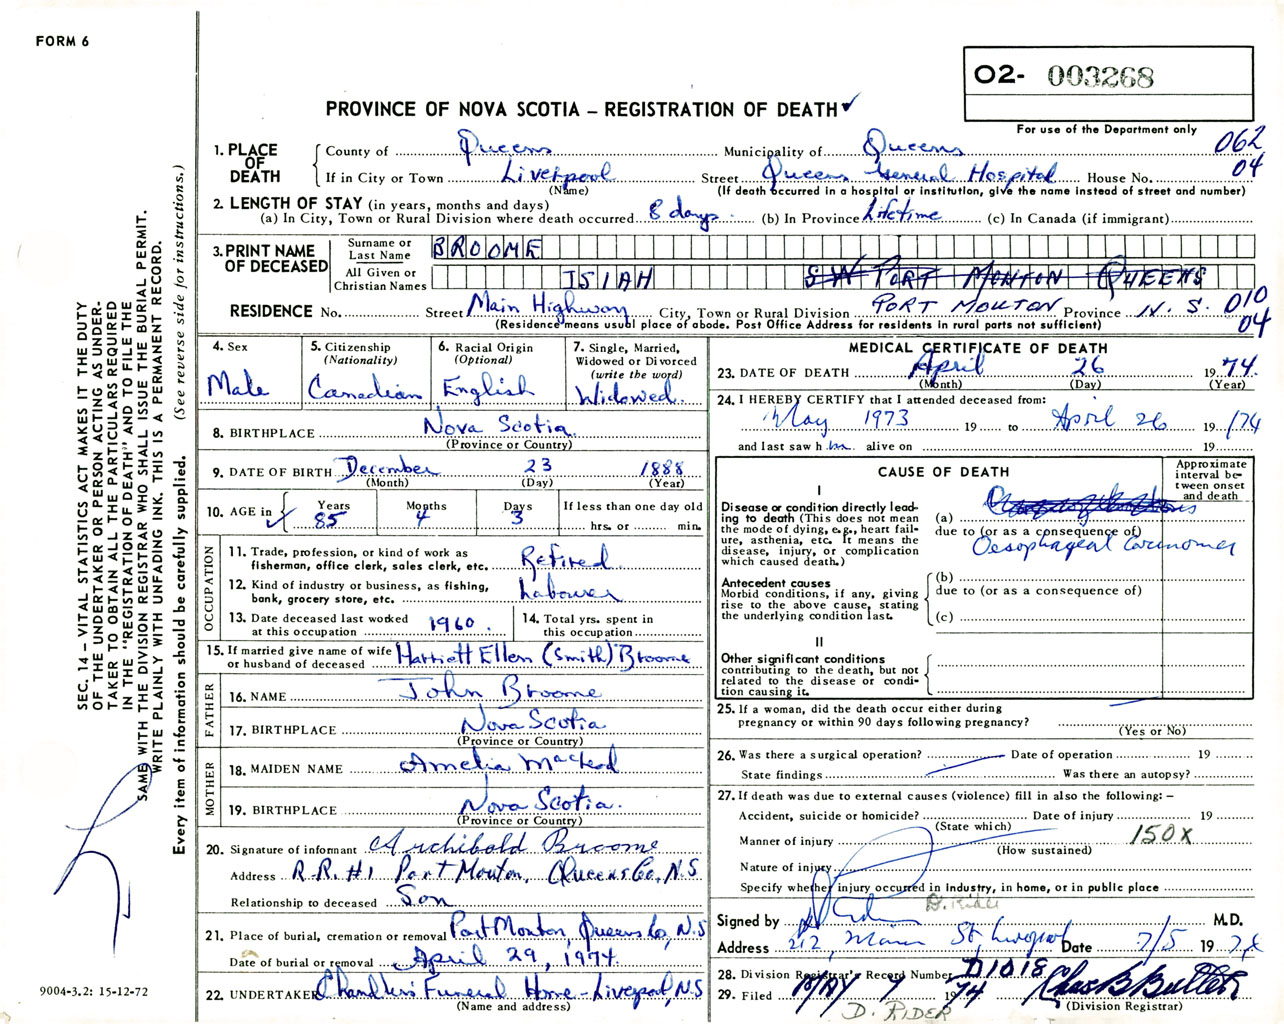 FORM 6
O2- 003268
PROVINCE OF NOVA SCOTIA – REGISTRATION OF DEATH ✓
For use of the Department only
062
04
1. PLACE OF DEATH
County of Queens Municipality of Queens
If in City or Town Liverpool Street Queens General Hospital House No.
(Name) (If death occurred in a hospital or institution, give the name instead of street and number)
2. LENGTH OF STAY (in years, months and days)
(a) In City, Town or Rural Division where death occurred 8 days (b) In Province Lifetime (c) In Canada (if immigrant)
3. PRINT NAME OF DECEASED
Surname or Last Name BROOME
All Given or Christian Names ISIAH SW PORT MOUTON QUEENS
RESIDENCE No. Street Main Highway City, Town or Rural Division PORT MOUTON Province N. S. 010
04
(Residence means usual place of abode. Post Office Address for residents in rural parts not sufficient)
4. Sex
Male
5. Citizenship
(Nationality)
Canadian
6. Racial Origin
(Optional)
English
7. Single, Married, Widowed or Divorced
(write the word)
Widowed
8. BIRTHPLACE Nova Scotia
(Province or Country)
9. DATE OF BIRTH December 23 1888
(Month) (Day) (Year)
10. AGE in ✓ Years 85 Months 4 Days 3 If less than one day old
hrs. or min.
OCCUPATION
11. Trade, profession, or kind of work as fisherman, office clerk, sales clerk, etc. Retired
12. Kind of industry or business, as fishing, bank, grocery store, etc. Labourer
13. Date deceased last worked at this occupation 1960.
14. Total yrs. spent in this occupation
15. If married give name of wife or husband of deceased Harriett Ellen (Smith) Broome
FATHER
16. NAME John Broome
17. BIRTHPLACE Nova Scotia
(Province or Country)
MOTHER
18. MAIDEN NAME Amelia MacLeod
19. BIRTHPLACE Nova Scotia.
(Province or Country)
20. Signature of informant Archibald Broome
Address R.R. #1 Port Mouton, Queens Co., N.S
Relationship to deceased Son
21. Place of burial, cremation or removal Port Mouton, Queens Co, N.S
Date of burial or removal April 29, 1974.
22. UNDERTAKER Chandlers' Funeral Home - Liverpool, N.S
(Name and address)
MEDICAL CERTIFICATE OF DEATH
23. DATE OF DEATH April 26 1974.
(Month) (Day) (Year)
24. I HEREBY CERTIFY that I attended deceased from:
May 1973 19 to April 26 19 /74
and last saw h im alive on 19
CAUSE OF DEATH
Approximate interval between onset and death
I
Disease or condition directly leading to death (This does not mean the mode of dying, e.g., heart failure, asthenia, etc. It means the disease, injury, or complication which caused death.)
(a)
due to (or as a consequence of)
Oesophageal Carcinoma
Antecedent causes
Morbid conditions, if any, giving rise to the above cause, stating the underlying condition last.
(b)
due to (or as a consequence of)
(c)
II
Other significant conditions
contributing to the death, but not related to the disease or condition causing it.
25. If a woman, did the death occur either during pregnancy or within 90 days following pregnancy?
(Yes or No)
26. Was there a surgical operation? Date of operation 19
State findings Was there an autopsy?
27. If death was due to external causes (violence) fill in also the following: –
Accident, suicide or homicide? Date of injury 19
(State which)
Manner of injury 150X
(How sustained)
Nature of injury
Specify whether injury occurred in Industry, in home, or in public place
Signed by M.D.
Address 212, Main St Liverpool Date 7/5 19 74
28. Division Registrar's Record Number D1018
29. Filed MAY 7 1974 Chas B Butler
(Division Registrar)
D. RIDER
SEC. 14 – VITAL STATISTICS ACT MAKES IT THE DUTY
OF THE UNDERTAKER OR PERSON ACTING AS UNDER-
TAKER TO OBTAIN ALL THE PARTICULARS REQUIRED
IN THE "REGISTRATION OF DEATH" AND TO FILE THE
SAME WITH THE DIVISION REGISTRAR WHO SHALL ISSUE THE BURIAL PERMIT.
WRITE PLAINLY WITH UNFADING INK. THIS IS A PERMANENT RECORD.
Every item of information should be carefully supplied. (See reverse side for instructions.)
9004-3.2: 15-12-72